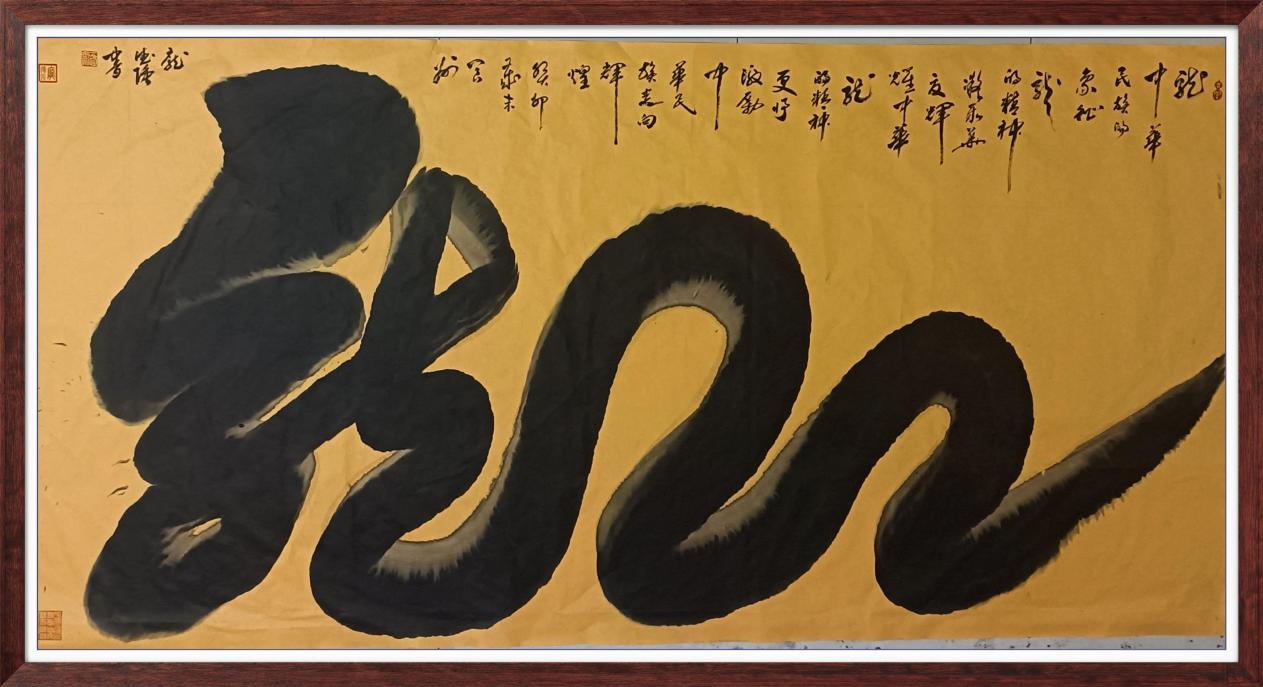 龍
中華
民族的
象征
龍
的精神
凝聚華
夏輝
耀中華
龍
的精神
更
激勵
中
華民
族走向
輝
煌
癸卯
歲末
龍
書
龍